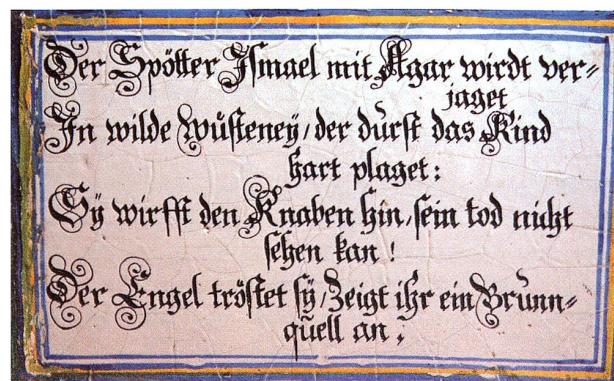 Der Spötter Ismael mit Agar wirdt ver=
jaget
In wilde wüsteneÿ / der durst das Kind
hart plaget:
Sÿ wirfft den Knaben hin, sein tod nicht
sehen kan!
Der Engel tröstet sÿ / Zeigt ihr ein Brunn=
quell an.